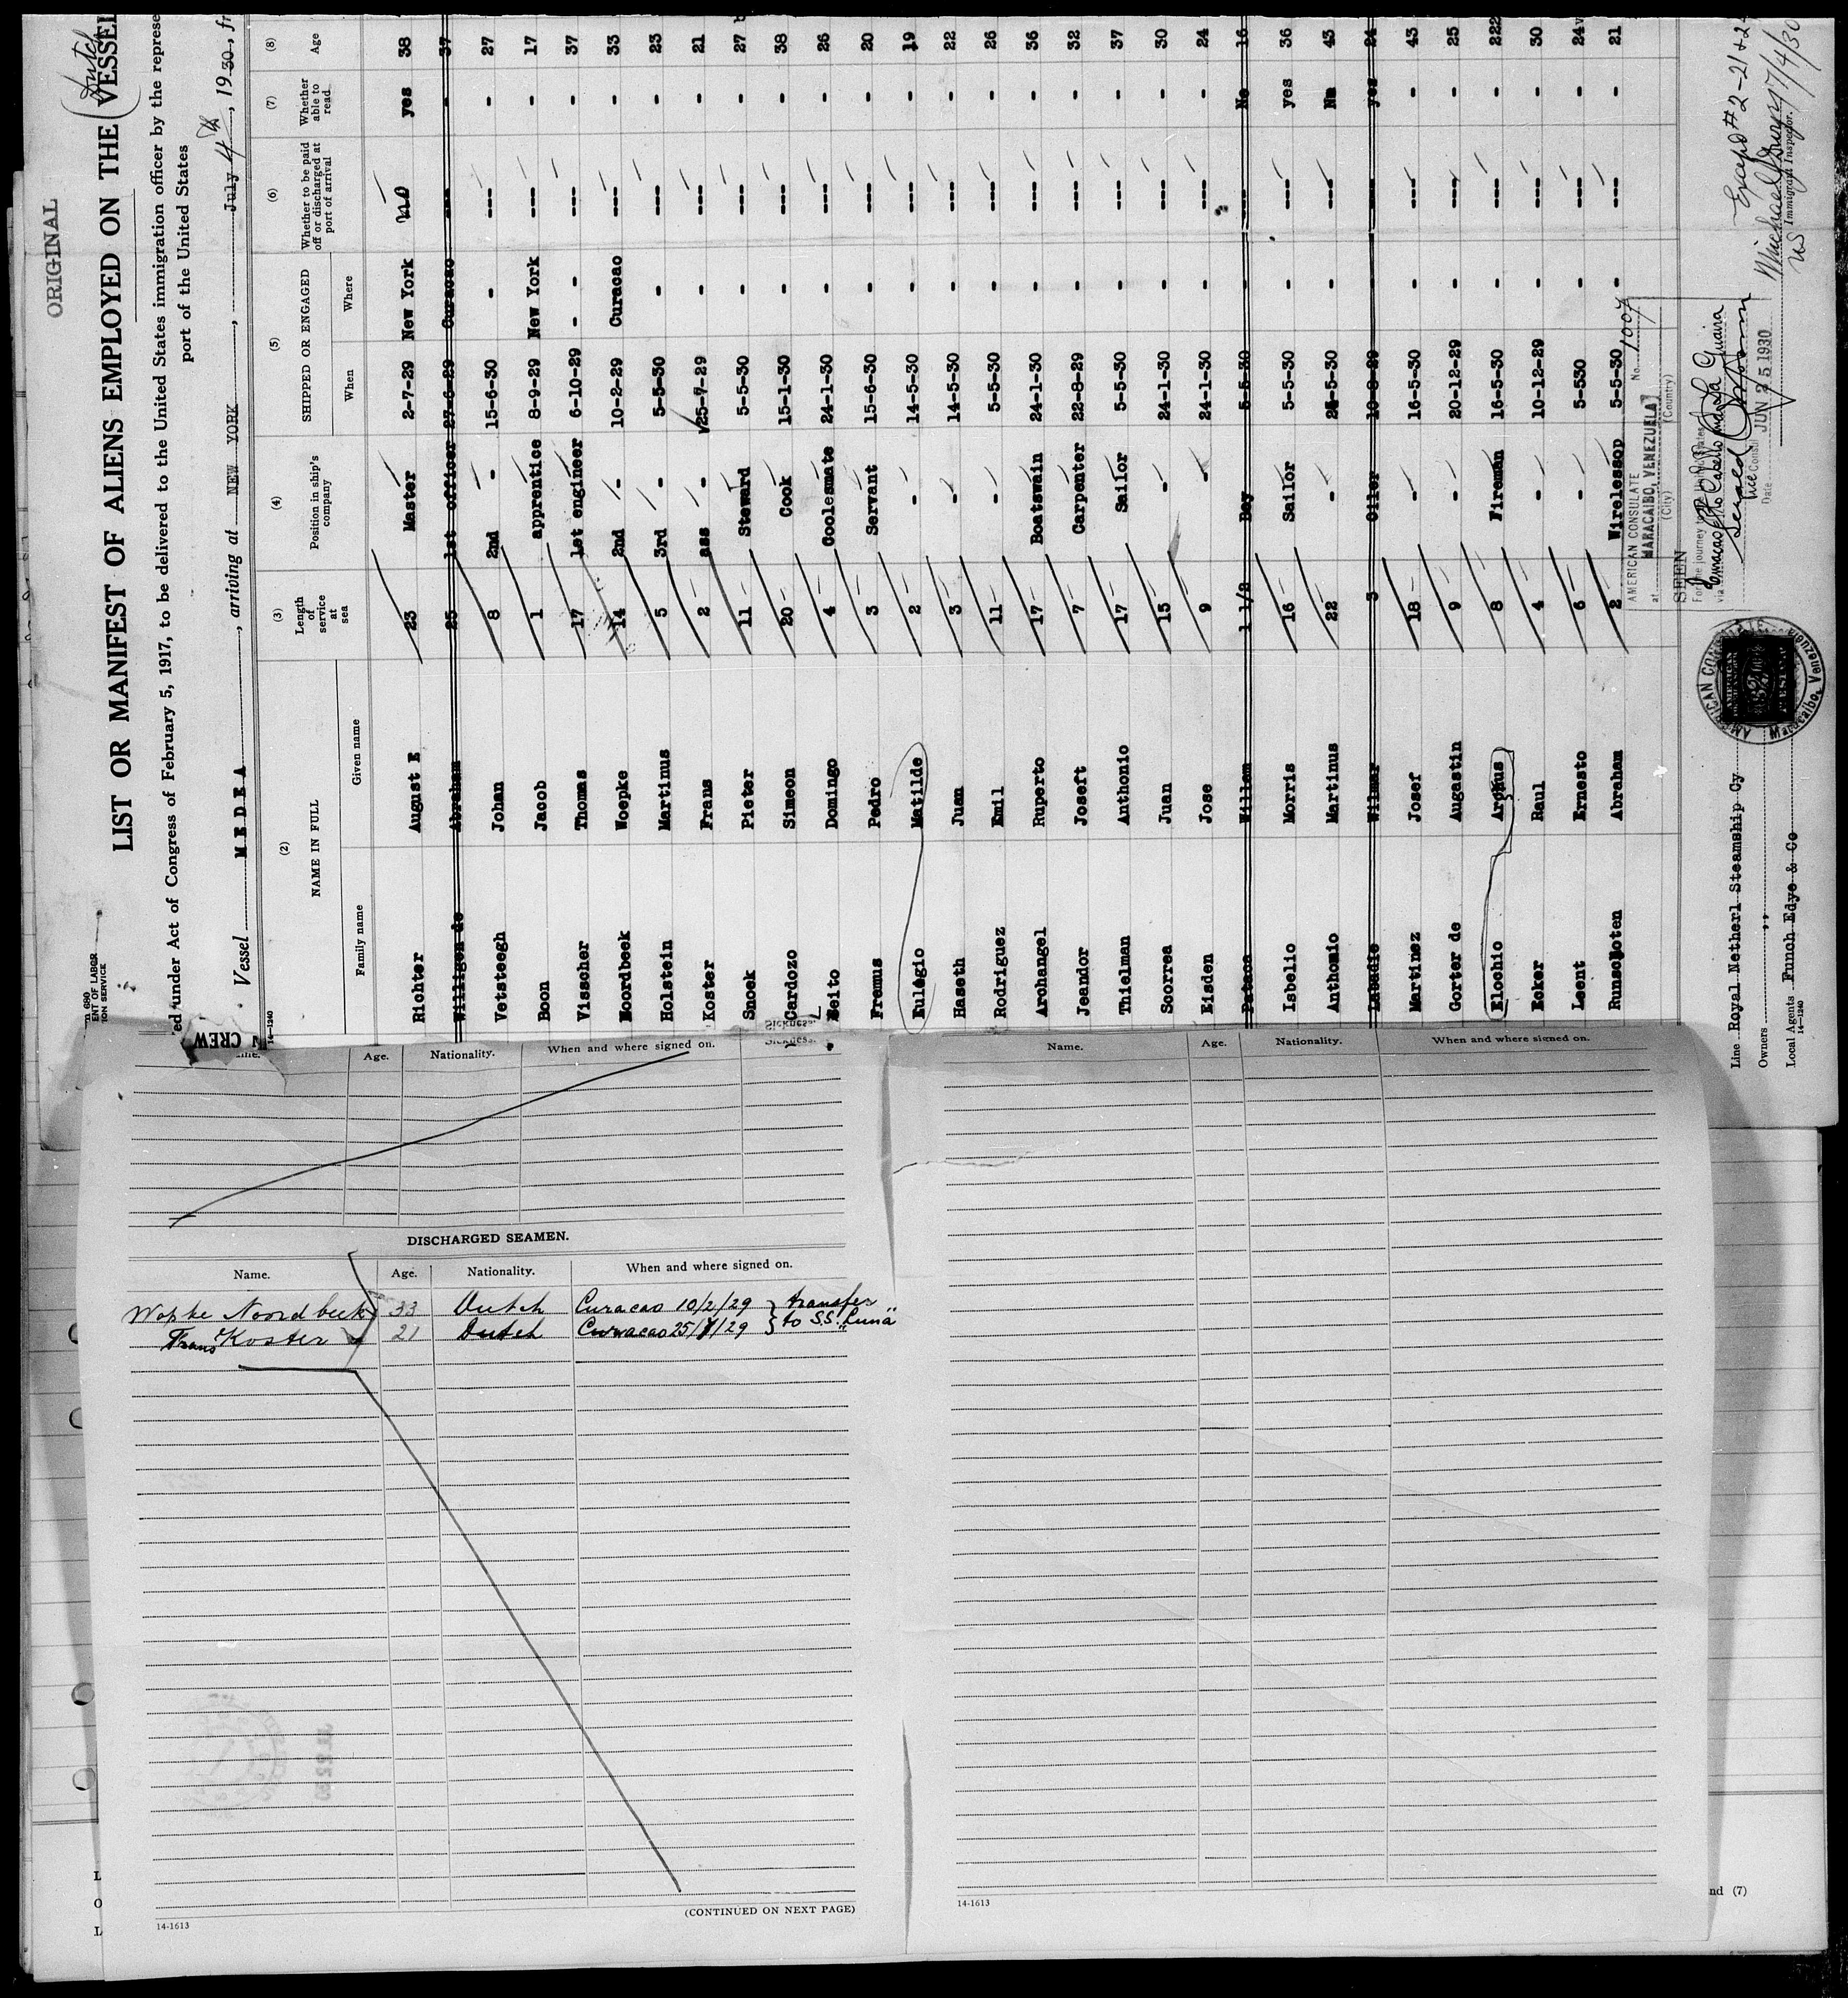 ORIGINAL
LIST OR MANIFEST OF ALIENS EMPLOYED ON THE VESSEL
Dutch
ed under Act of Congress of February 5, 1917, to be delivered to the United States immigration officer by the represe
port of the United States
Vessel MEDEA, arriving at NEW YORK, July 4th, 1930, fr
(2) (3) (4) (5) (6) (7) (8)
NAME IN FULL Length of service at sea Position in ship's company SHIPPED OR ENGAGED Whether to be paid off or discharged at port of arrival Whether able to read Age
Family name Given name When Where
Richter August E 23 Master 2-7-29 New York no yes 38
Willigen de Abraham 25 1st officer 27-6-29 Curacao --- - 37
Vetsteegh Johan 8 2nd - 15-6-30 - --- - 27
Boon Jacob 1 apprentice 8-9-29 New York --- - 17
Visscher Thomas 17 1st engineer 6-10-29 - - --- - 37
Noordbeek Woepke 14 2nd - 10-2-29 Curacao --- - 33
Holstein Martinus 5 3rd - 5-5-30 - --- - 23
Koster Frans 2 ass - 25-7-29 - --- - 21
Snoek Pieter 11 Steward 5-5-30 - --- - 27
Cardozo Simeon 20 Cook 15-1-30 - --- - 38
Beito Domingo 4 Coolesmate 24-1-30 - --- - 26
Fremus Pedro 3 Servant 15-6-30 - --- - 20
Eulegio Matilde 2 - 14-5-30 - --- - 19
Haseth Juan 3 - 14-5-30 - --- - 22
Rodriguez Emil 11 - 5-5-30 - --- - 26
Archangel Ruperto 17 Boatswain 24-1-30 - --- - 36
Jeandor Joseft 7 Carpenter 22-8-29 - --- - 32
Thielman Anthonio 17 Sailor 5-5-30 - --- - 37
Scorrea Juan 15 - 24-1-30 - --- - 30
Eisden Jose 9 - 24-1-30 - --- - 24
Pataca Willem 1 1/2 Boy 5-5-30 - --- No 16
Isbelio Morris 16 Sailor 5-5-30 - --- yes 36
Anthonio Martinus 22 - 24-5-30 - --- No 43
Labadie Wilmar 3 Oiler 10-8-29 - --- yes 24
Martinez Josef 18 - 16-5-30 - --- - 43
Gorter de Augastin 9 - 20-12-29 - --- - 25
Elochio Arphus 8 Fireman 16-5-30 - --- - 222
Ecker Raul 4 - 10-12-29 - --- - 30
Leent Ernesto 6 - 5-530 - --- - 24
Runschoten Abraham 2 Wirelessop 5-5-30 - --- - 21
AMERICAN CONSULATE No. 1007
at MARACAIBO, VENEZUELA
(City) (Country)
SEEN
For the journey to the United States
via Curacao Pto Cabello and La Guaira
Vice Consul
Date JUN 25 1930
AMERICAN CONSULATE Maracaibo, Venezuela
Line Royal Netherl Steamship Cy
Owners ,,
Local Agents Funch Edye & Co
14-1240
Immigrant Inspector.
7/4/30
CREW
14-1240
Age. Nationality. When and where signed on. Sickness.
DISCHARGED SEAMEN.
Name. Age. Nationality. When and where signed on.
Wopke Noordbeek 33 Dutch Curacao 10/2/29 } transfer
Frans Koster 21 Dutch Curacao 25/7/29 } to S.S. "Luna"
(CONTINUED ON NEXT PAGE)
14-1613
Name. Age. Nationality. When and where signed on.
14-1613
nd (7)